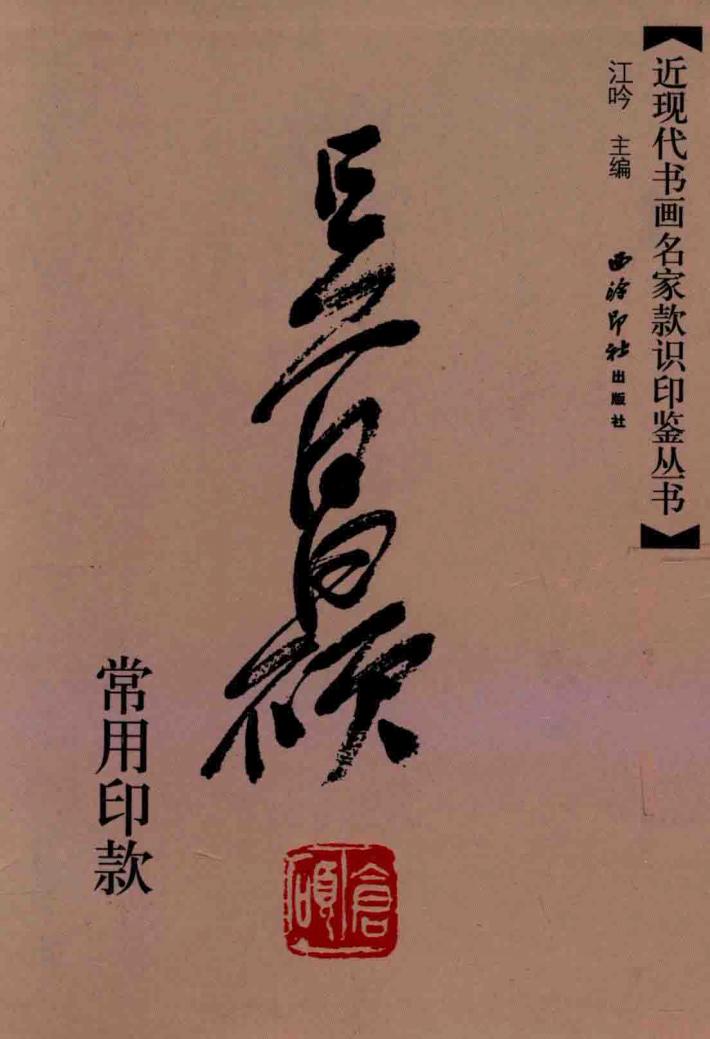 【近现代书画名家款识印鉴丛书】
江吟 主编
西泠印社出版社
吴昌硕
常用印款
倉碩